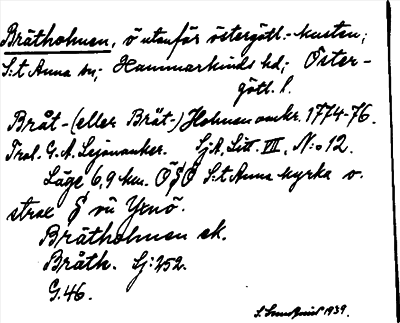 Brätholmen, ö utanför östergötl.-kusten;
S:t Anna sn; Hammarkinds hd; Öster-
götl. l.
Bråt-(eller Brät-)Holmen omkr. 1774-76.
Trol. G. A. Lejonanker. SjA, Litt. VII, N:o 12.
Läge 6,9 km. ÖSÖ S:t Anna kyrka o.
strax S vu Yxnö.
Brätholmen ek.
Bråth. Sj:252.
G. 46.
1939.